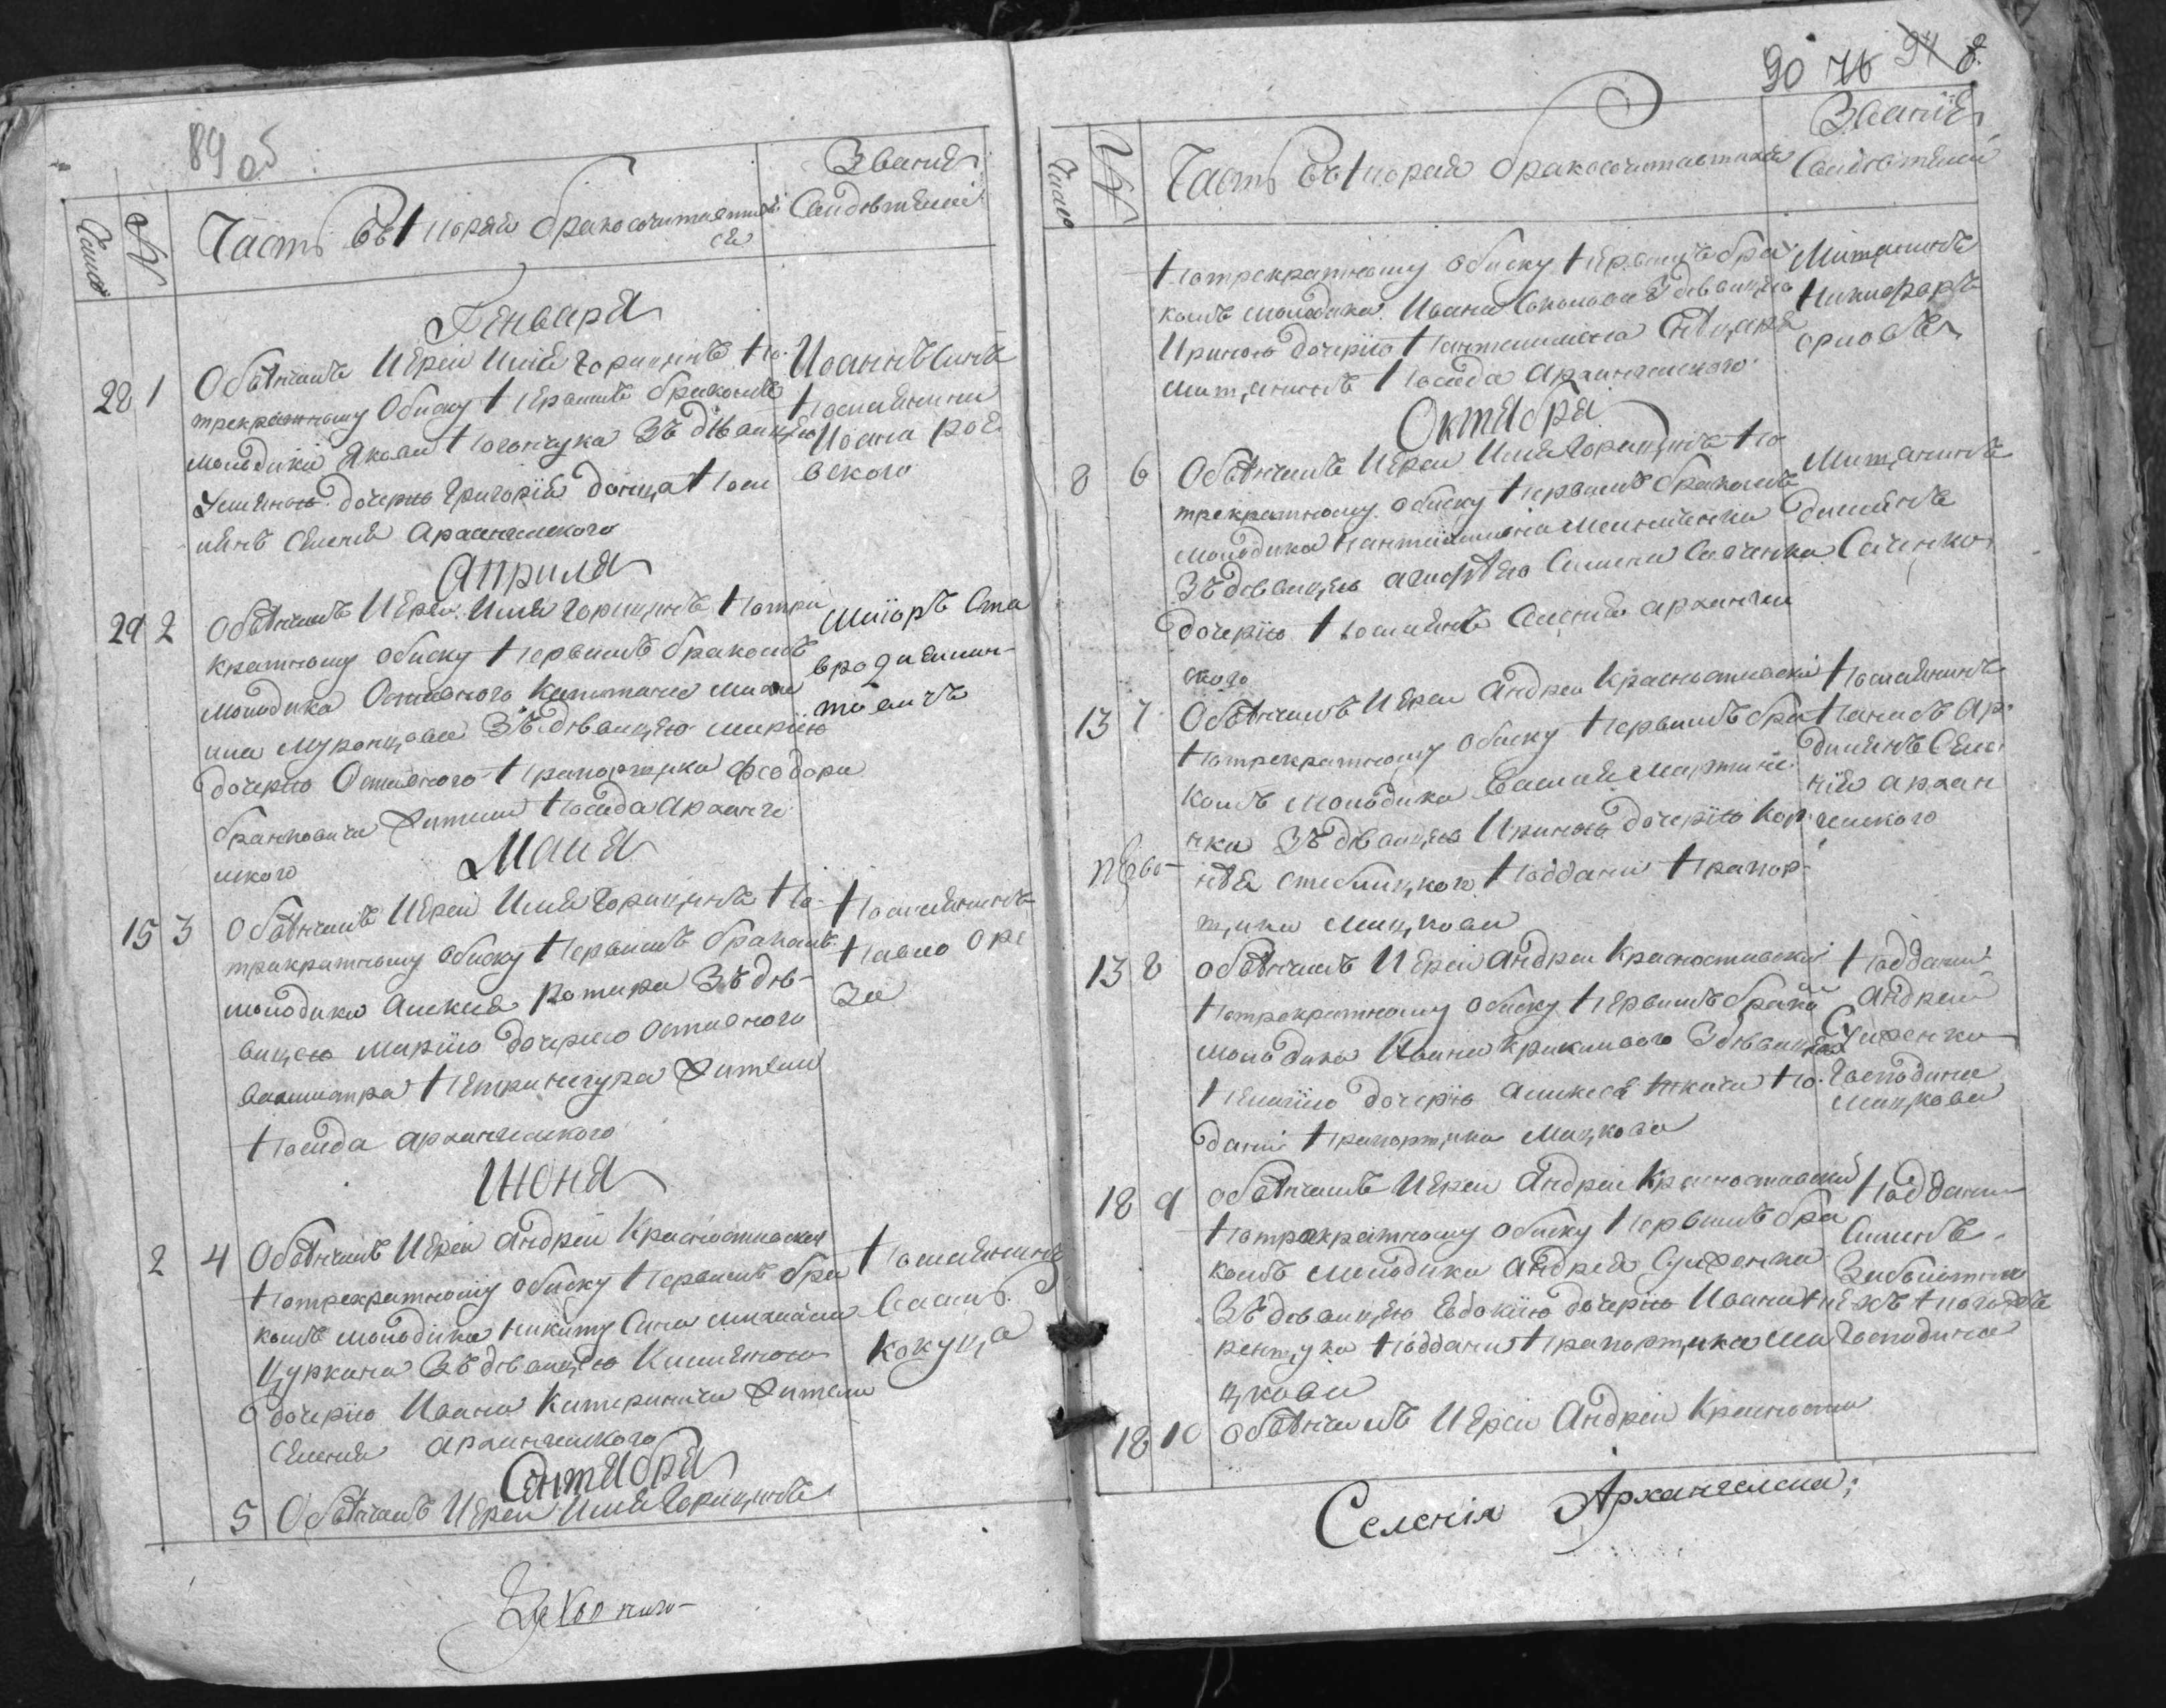 89 об
Число
№
Часть Вѣторая бракосочитавшихъ
ся
Званіе
Свидѣтелей
Генваря
28 1 Обвѣнчалъ Иерей Илия Горицинъ По
трекратному Обиску Первимъ бракомъ
молодика Якова Логвинчука Зъ дѣвицею
Улияною дочерию Григорія донца Посе
ленъ Селения Архангелского
Иоаннъ Синъ
Поселенина
Иоана рое
вского
Априля
29 2 Обвѣнчалъ Иерей Илия Горицинъ Потри
кратному обиску Первимъ бракомъ
молодика Отставного Капитана Миха
ила Муронцова Зъ дѣвицею Мариею
дочерию Отставного Прапорщика Феодора
бранковича Жители Посада Арханге
лского
Маиоръ Ста
вро
Маия
15 3 Обвѣнчалъ Иерей Илия Горицинъ По
трикратному обиску Первимъ бракомъ
молодика Алексея Зъ дѣ
вицею Мариею дочерию Отставного
вахмистра Петра Жители
Посада архангелского
Поселенинъ
Павло Оре
за
Июня
2 4 Обвѣнчалъ Иерей Андрей Красноставский
Потрекратному обиску Первимъ бра
комъ молодика Никиту Сина Михаила
Цуркана Зъ дѣвицею Килияною
дочерию Ивана Катеринича Жители
Селения архангелского
Поселенинъ
Василь
Кокуца
Сентября
5 Обвѣнчалъ Иерей Илия Горицинъ
90 76 94 8
Число
№
Часть Вѣторая бракосочитавшихся
Званіе
Свидѣтелей
Потрекратному обиску Первимъ бра
комъ молодика Ивана Соколова З дѣвицею
Ириною дочерию Пантелимона
мищанинъ Посада Архангелского
Мищанинъ
Никифоръ
орловъ
Октября
8 6 Обвѣнчалъ Иерей Илия Горицинъ По
трекратному обиску Первимъ бракомъ
молодика Пантелимона Мелниченка
Зъ дѣвицею Агафією Симена Саченка
дочерию Поселенъ Селения арханге
лского
Мищанинъ
Саченко
13 7 Обвѣнчалъ Иерей Андрей Красноставский
Потрекратному обиску Первимъ бра
комъ молодика Василя Мартине
нка Зъ дѣвицею Ириною дочерию Кор
нѣя Стеблицкого Поддани Прапор
щика Мацкова
Поселенинъ
Панасъ Ар
Селе
ния архан
гелского
13 8 обвѣнчалъ Иерей Андрей Красноставский
Потрекратному обиску Первимъ брако
молодика Ивана Крикливого З дѣвицею
Пелагією дочерию Алексея ткача По
дани Прапорщика Мацкова
Поддани
Андрей
Сухенко
Господина
Мацкова
18 9 обвѣнчалъ Иерей Андрей Красноставский
Потрекратному обиску Первимъ бра
комъ молодика Андрея Сухенка
Зъ дѣвицею Евдокією дочерию Ивана
ренчука Поддани Прапорщика Ма
цкова
Поддани
Симонъ
Господина
18 10 обвѣнчалъ Иерей Андрей Красноста
Селенія Архангелска;